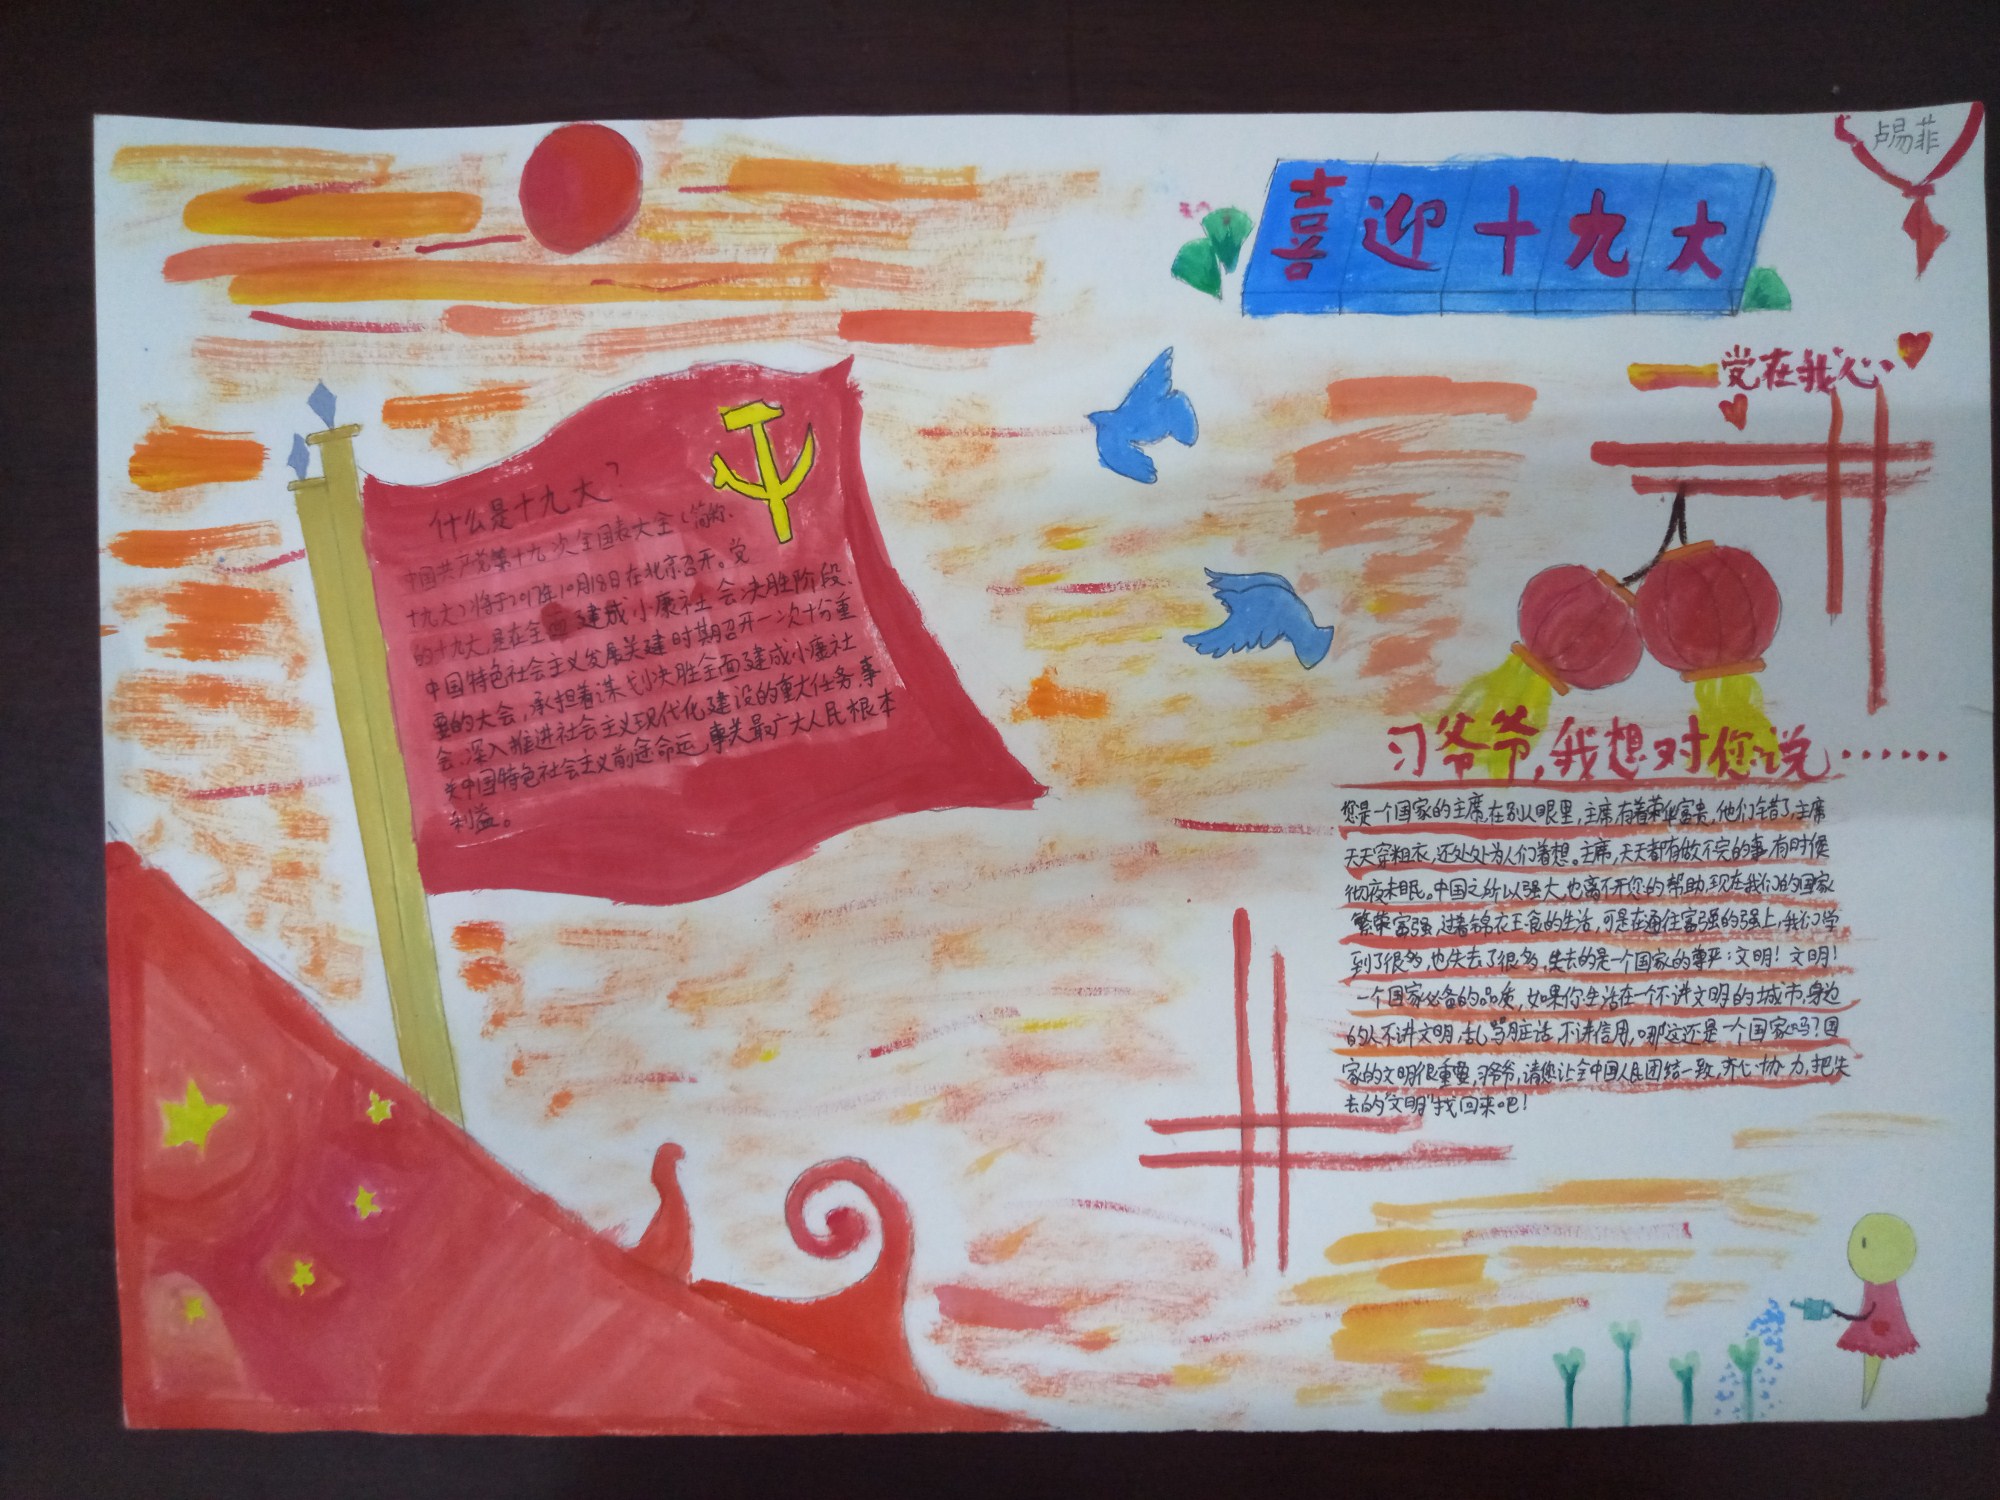 卢易菲
喜迎十九大
党在我心
什么是十九大?
中国共产党第十九次全国表大全(简称、
十九大)将于2017年10月18日在北京召开。党
的十九大,是在全面建成小康社会决胜阶段、
中国特色社会主义发展关建时期召开一次十分重
要的大会,承担着谋划决胜全面建成小康社
会、深入推进社会主义现代化建设的重大任务,事
关中国特色社会主义前途命运,事关最广大人民根本
利益。
习爷爷,我想对您说……
您是一个国家的主席,在别人眼里,主席有着荣华富贵,他们错了,主席
天天穿粗衣,还处处为人们着想。主席,天天都有做不完的事,有时候
彻夜未眠。中国之所以强大,也离不开您的帮助,现在我们的国家
繁荣富强,过着锦衣玉食的生活,可是在通往富强的强上,我们学
到了很多,也失去了很多,失去的是一个国家的尊严:文明!文明!
一个国家必备的品质,如果你生活在一个不讲文明的城市,身边
的人不讲文明,乱骂脏话,不讲信用,哪这还是一个国家吗?国
家的文明很重要,习爷爷,请您让全中国人民团结一致,齐心协力,把失
去的"文明"找回来吧!